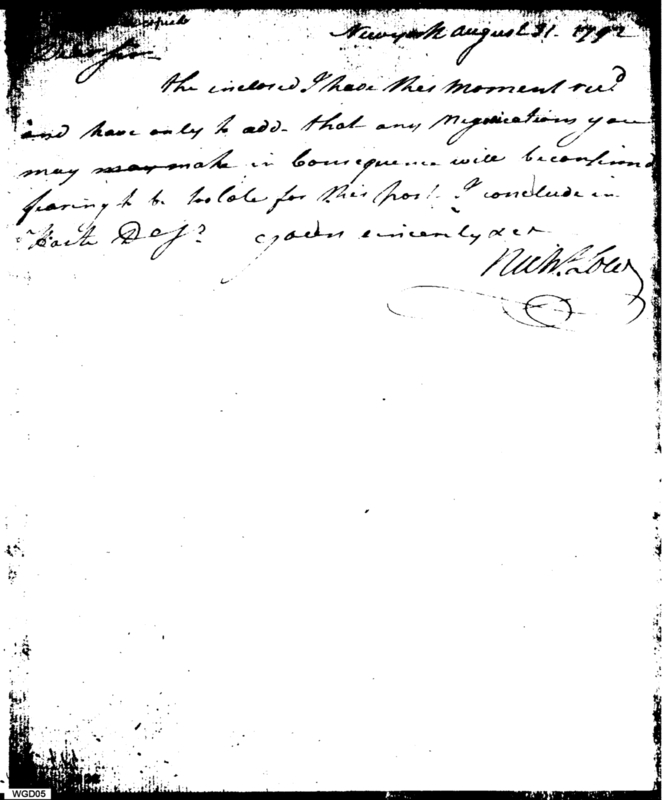 New york august 31 1792
Dear Sir
the inclosed I have this moment recd
and have only to add that any Negociations you
may may make in Consequence will be confirmd
fearing to be to late for this post I conclude in
haste Dr Sr yours sincerely &c &c
Nichs Low
WGD05